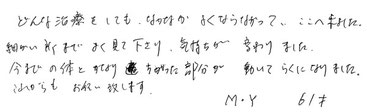 どんな治療をしても、なかなかよくならなかって、ここへ来ました。
細かい所までよく見て下さり、気持ちが変わりました。
今までの体とかなりちがった部分が動いてらくになりました。
これからもお願い致します。
M・Y 61才